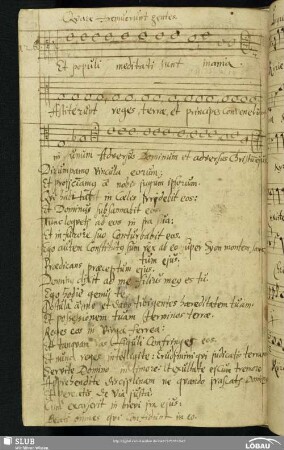 Quare fremuerunt gentes
Et populi meditati sunt inania
Astiterunt reges terrae, et principes convenerunt
in unum Adversus Dominum et adversus Christum ejus
Dirumpamus vincula eorum:
Et projiciamus a nobis jugum ipsorum.
Qui habitat in Coelis irridebit eos:
Et Dominus subsannabit eos.
Tunc loquetur ad eos in ira sua:
Et in furore suo Conturbabit eos.
Ego autem Constitutus sum rex ab eo super Syon montem
Praedicans praeceptum ejus.
Domine dixit ad me filius meus es tu.
Ego hodie genui te.
Postula a me et dabo tibi gentes haereditatem tuam
Et possessionem tuam terminos terrae.
Reges eos in virga ferrea:
Et tanquam vas figuli Confringes eos.
Et nunc reges intelligite: Erudimini qui judicatis terram
Servite Domino in timore: Et exultate ei cum tremore
Apprehendite disciplinam ne quando irascatur
de via justa.
Cum exarserit in brevi ira ejus:
Beati omnes qui Confidunt in eo.
SLUB
LÖBAU